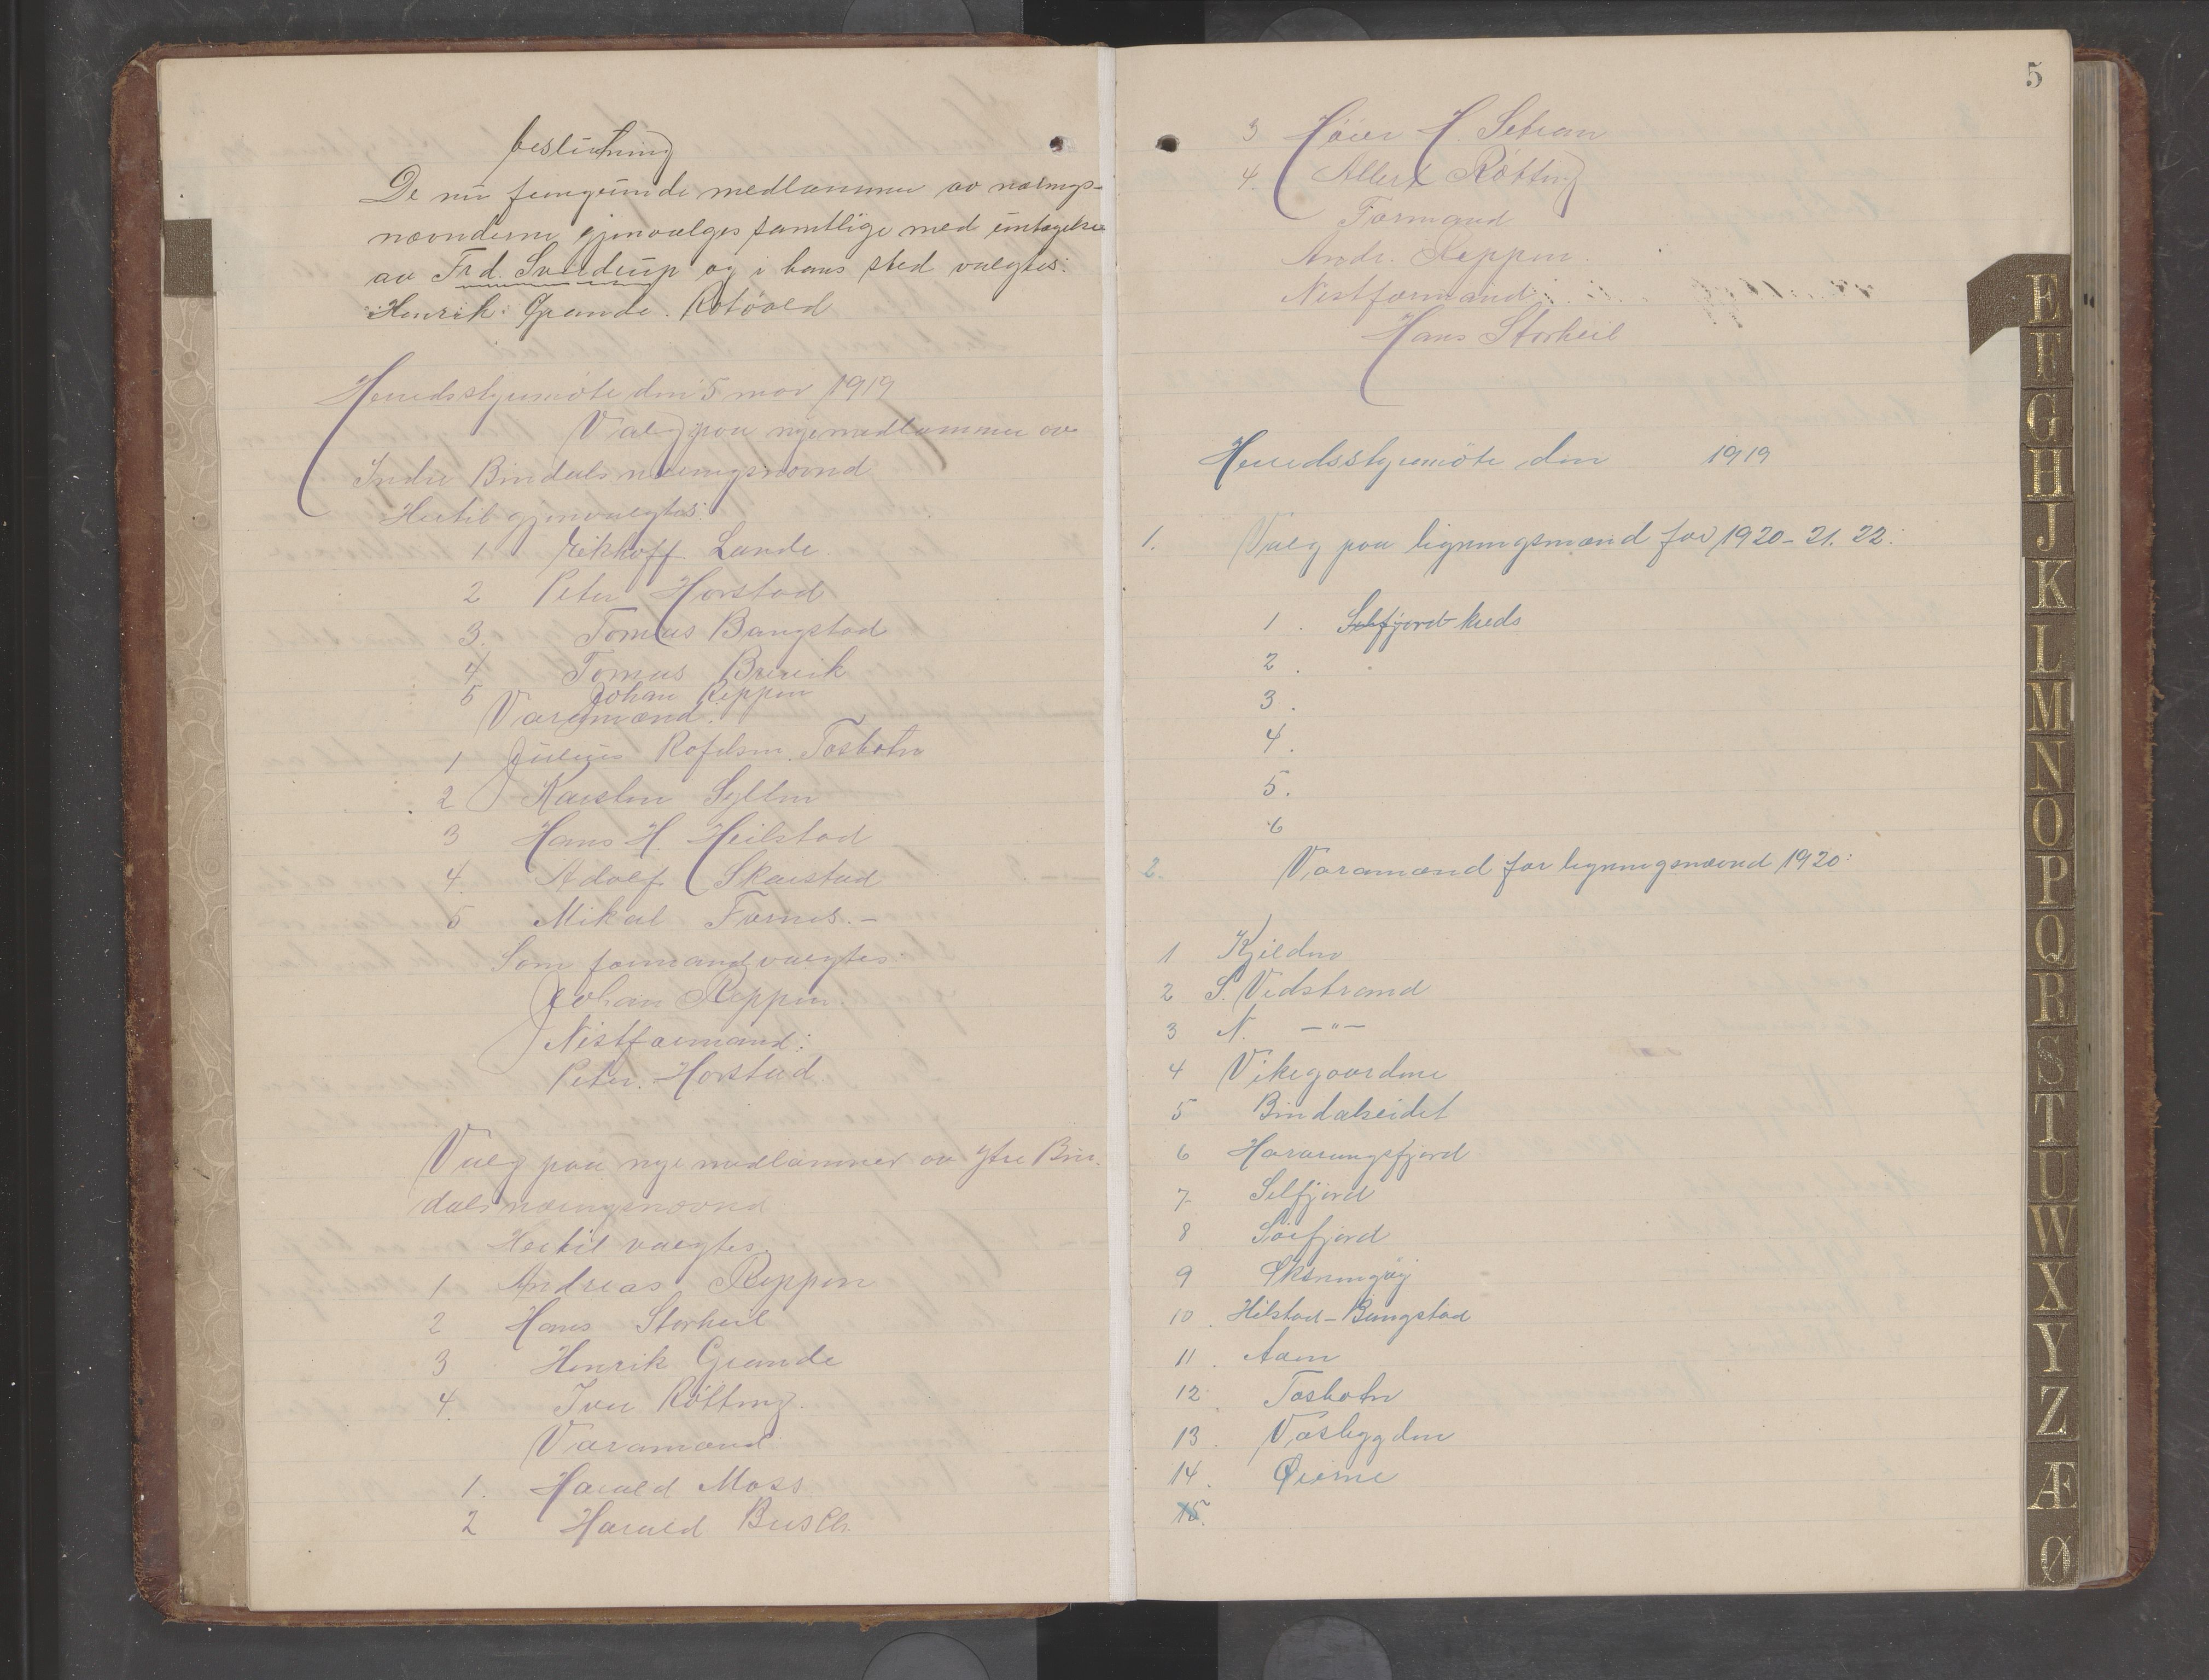 beslutning
De nu fungerende medlemmer av nærings-
nævnderne gjenvælges samtlige med untagelse
av Frd. Sverdrup og i hans sted valgtes:
Henrik Grande.
Herredsstyremöte den 5 mar 1919
Valg paa nye medlemmer av
Indre Bindals næringsnævnd
Hertil gjenvalgtes:
1 Eikhoff Lande.
2 Peter Horstad
3. Tomas Bangstad
4 Tomas Brevik
5 Johan Reppen
Varamænd.
1 Julius Tosbotn
2 Karsten Sylten
3 Hans H. Heilstad
4. Adolf Skarstad
5 Mikal Fornes. –
Som formand valgtes:
Johan Reppen.
Næstformand:
Peter. Horstad.
Valg paa nye medlemmer av Ytre Bin-
dals næringsnævnd
Hertil valgtes.
1 Andreas Reppen
2 Hans Storheil
3 Henrik Grande
4. Iver Røtting.
Varamænd
1. Harald Moss
2 Harald Busch.
5
3 Höier H. Setran
4. Albert Røtting
Formand
Andr. Reppen.
Nestformand:
Hans Storheil
Herredsstyremöte den 1919
1. Valg paa ligningsmænd for 1920-21. 22:
1. Selfjord kreds
2.
3.
4.
5.
6
2. Varamænd for ligningsnævnd 1920:
1 Kjelden
2 S. Vedstrand
3 N. –"–
4 Vikegaardene
5 Bindalseidet
6 Hararangsfjord
7 Selfjord
8 Sörfjord
9
10. Hilstad – Bangstad
11. Aarn
12 Tosbotn
13. Vasbygden
14. Øerne
15.
E
F
G
H
J
K
L
M
N
O
P
Q
R
S
T
U
W
X
Y
Z
Æ
Ø